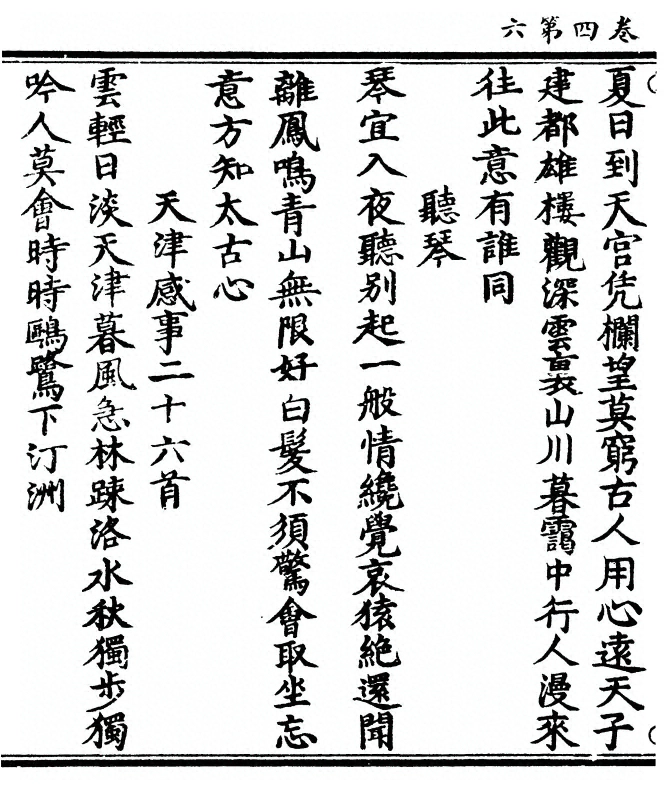 卷四第六
夏日到天宮凭欄望莫窮古人用心遠天子
建都雄樓觀深雲裏山川暮靄中行人漫來
往此意有誰同
聽琴
琴宜入夜聽别起一般情纔覺哀猿絶還聞
離鳳鳴青山無限好白髮不須驚會取坐忘
意方知太古心
天津感事二十六首
雲輕日淡天津暮風急林踈洛水秋獨步獨
吟人莫會時時鷗鷺下汀洲